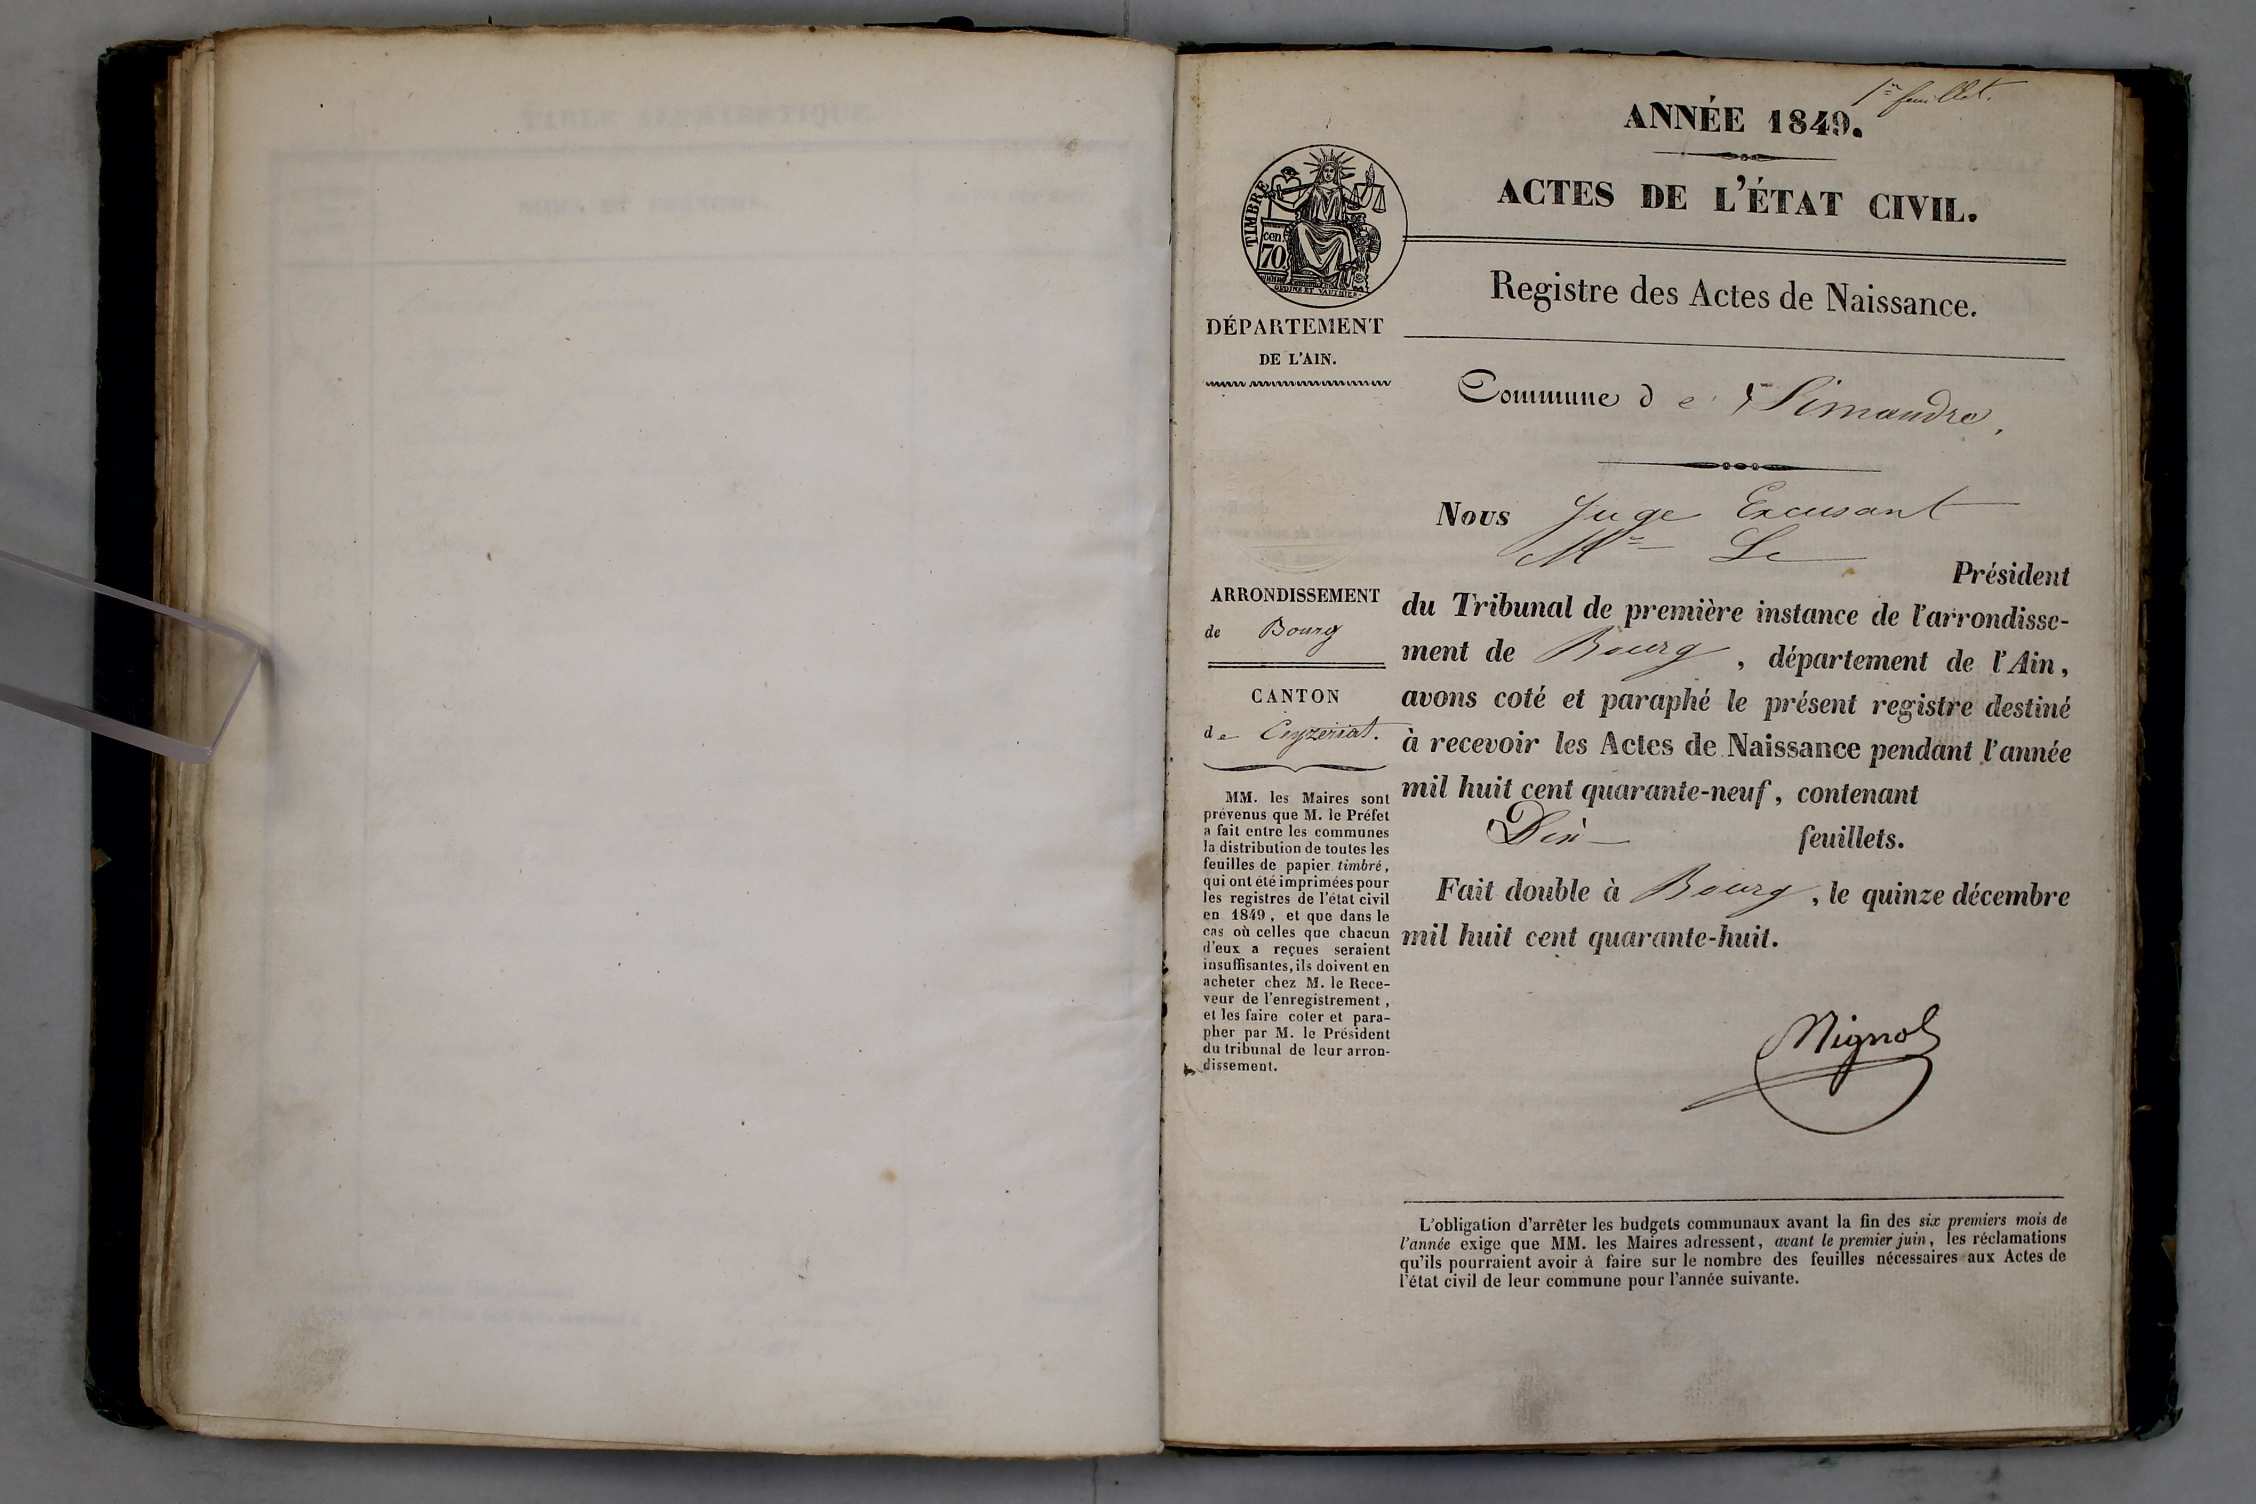 1er feuillet.
ANNÉE 1849.
ACTES DE L'ÉTAT CIVIL.
TIMBRE
cen.
70
Registre des Actes de Naissance.
DÉPARTEMENT
DE L'AIN.
Commune de Simandre,
Nous Juge Excusant
Mr Le
Président
du Tribunal de première instance de l'arrondisse-
ment de Bourg, département de l'Ain,
avons coté et paraphé le présent registre destiné
à recevoir les Actes de Naissance pendant l'année
mil huit cent quarante-neuf, contenant
Dix feuillets.
Fait double à Bourg, le quinze décembre
mil huit cent quarante-huit.
Mignot
ARRONDISSEMENT
de Bourg
CANTON
de Ceyzeriat.
MM. les Maires sont
prévenus que M. le Préfet
a fait entre les communes
la distribution de toutes les
feuilles de papier timbré,
qui ont été imprimées pour
les registres de l'état civil
en 1849, et que dans le
cas où celles que chacun
d'eux a reçues seraient
insuffisantes, ils doivent en
acheter chez M. le Rece-
veur de l'enregistrement,
et les faire coter et para-
pher par M. le Président
du tribunal de leur arron-
dissement.
L'obligation d'arrêter les budgets communaux avant la fin des six premiers mois de
l'année exige que MM. les Maires adressent, avant le premier juin, les réclamations
qu'ils pourraient avoir à faire sur le nombre des feuilles nécessaires aux Actes de
l'état civil de leur commune pour l'année suivante.